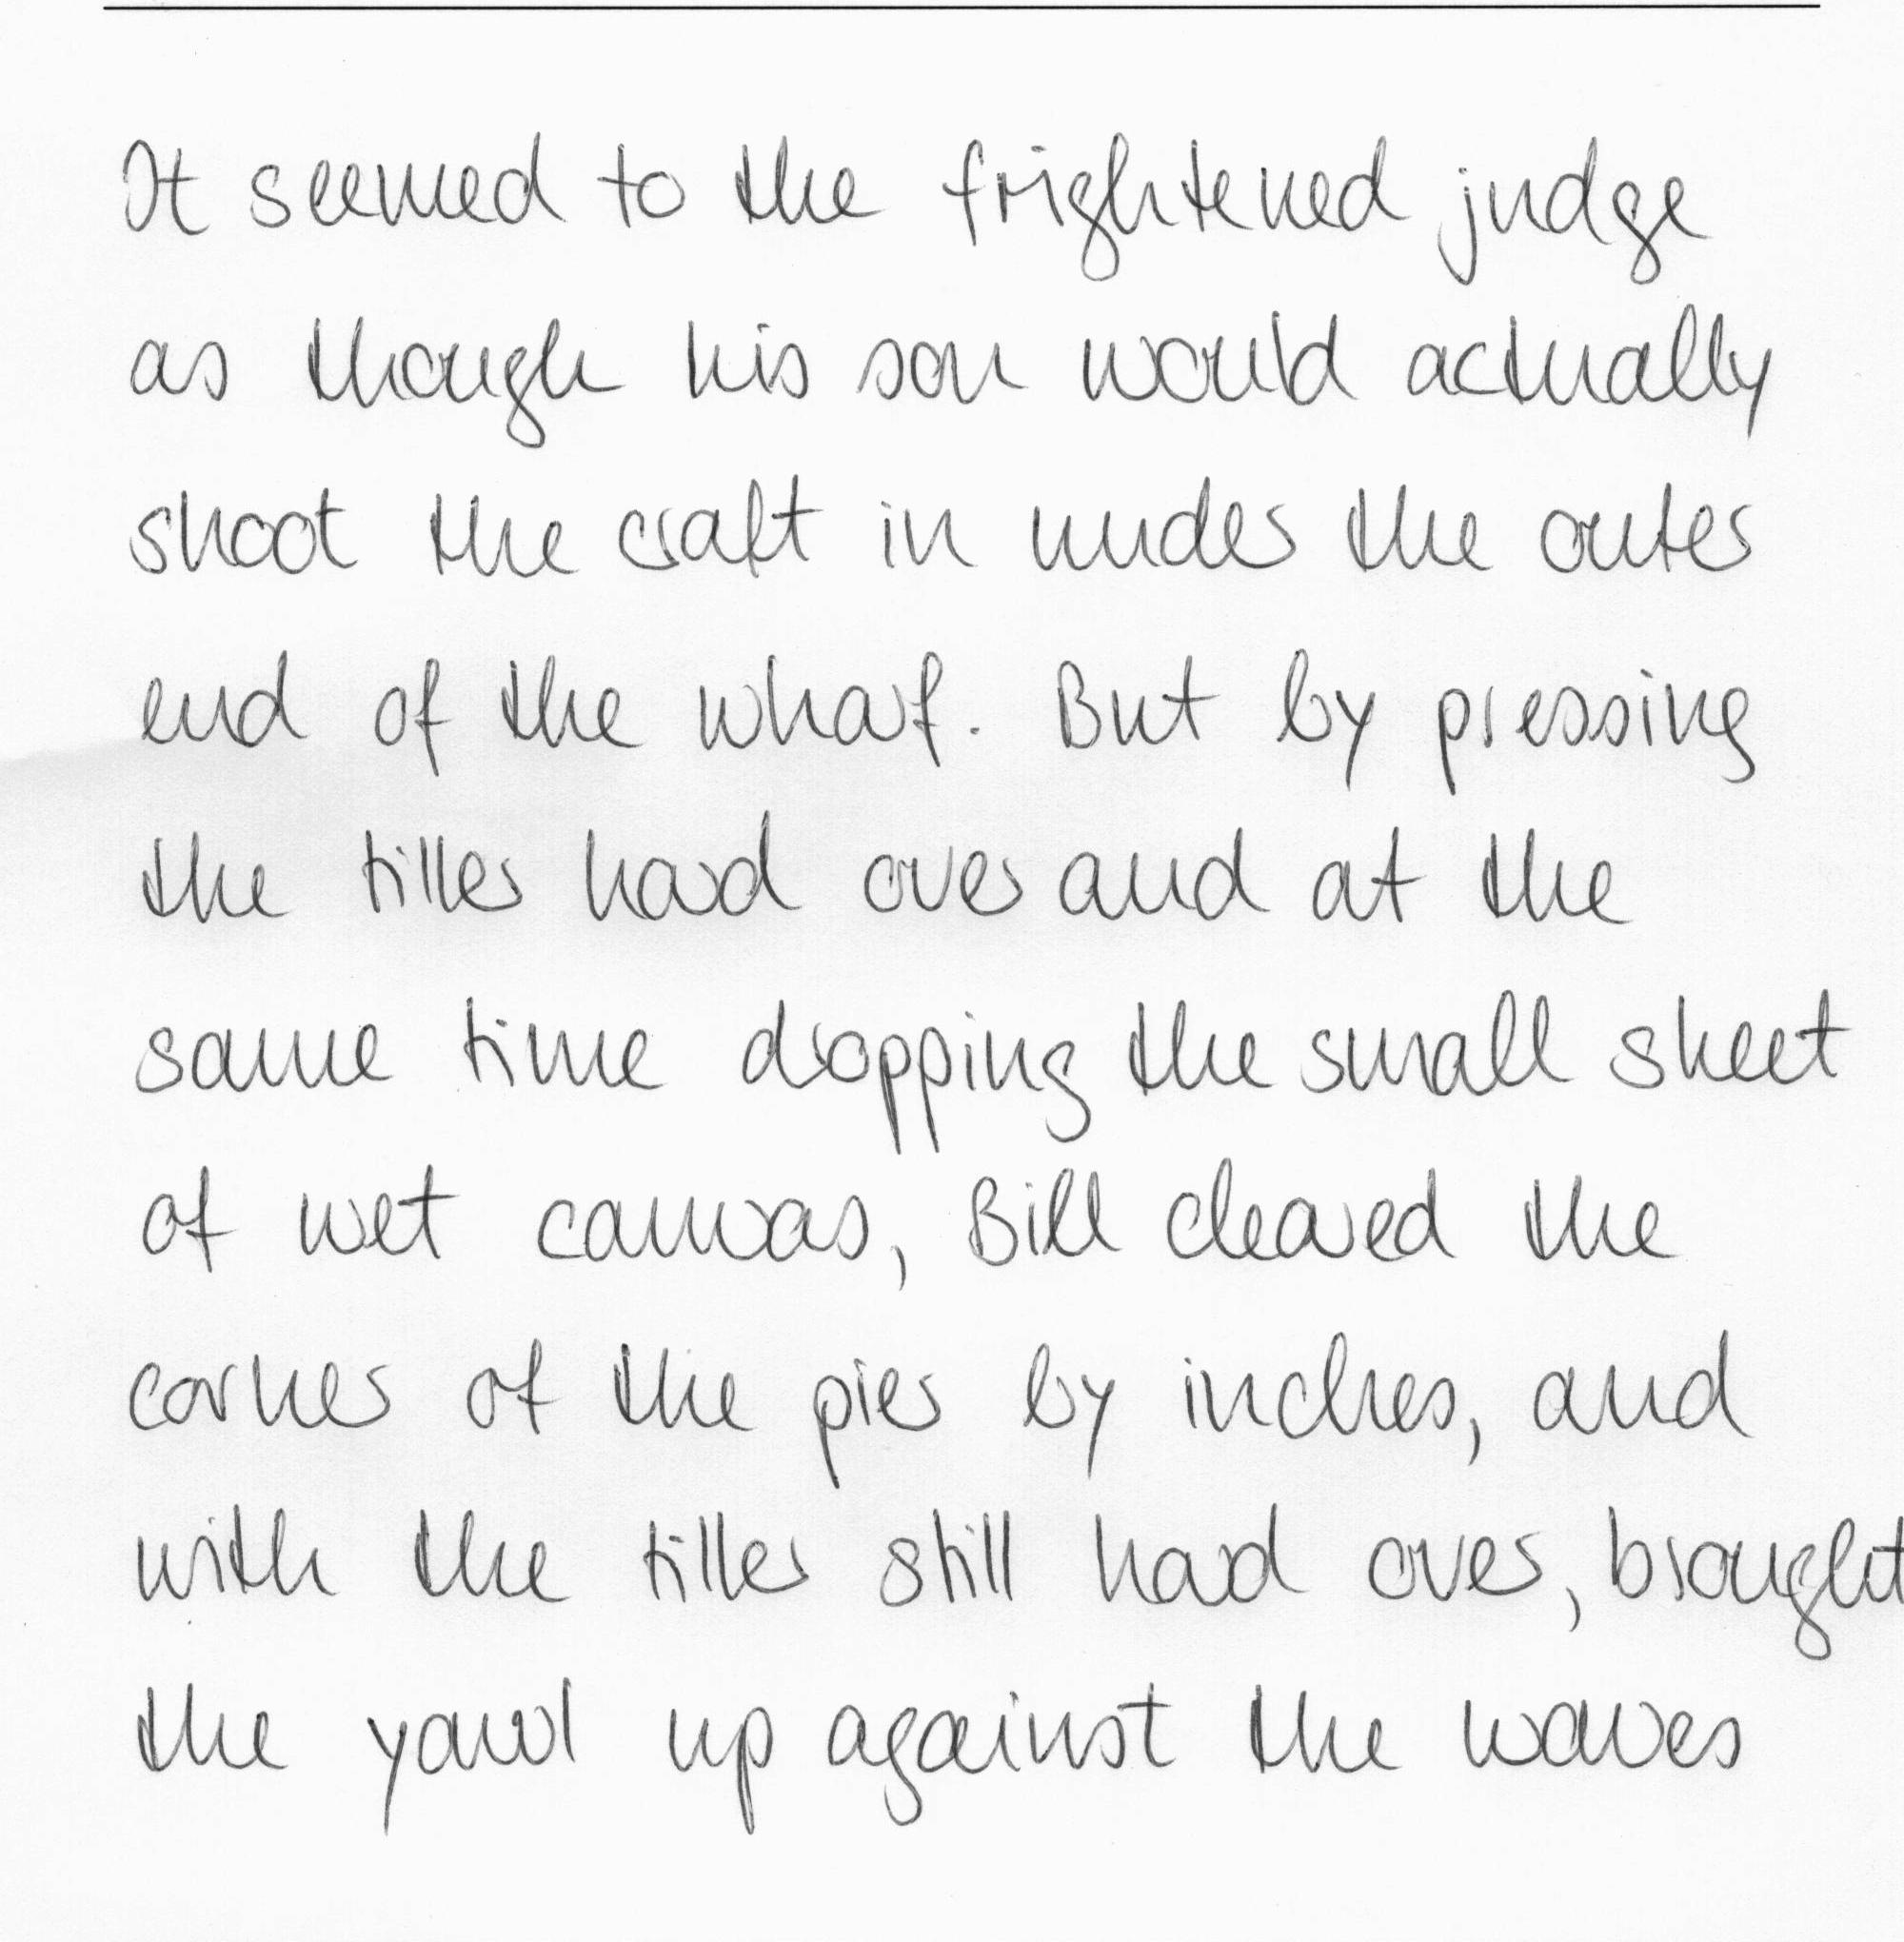 It seemed to the frightened judge
as though his son would actually
shoot the craft in under the outer
end of the wharf. But by pressing
the tiller hard over and at the
same time dropping the small sheet
of wet canvas, Bill cleared the
corner of the pier by inches, and
with the tiller still hard over, brought
the yawl up against the waves